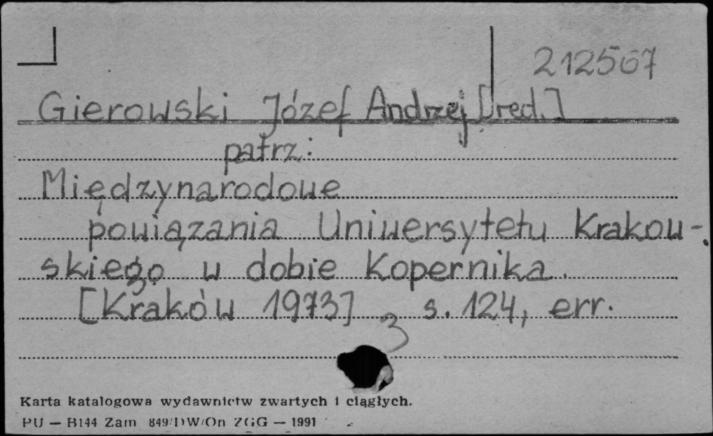 212567
Gierowski Józef Andrzej [red.]
patrz:
Międzynarodowe
powiązania Uniwersytetu Krakow-
skiego w dobie Kopernika.
[Kraków 1973] s. 124, err.
3
Karta katalogowa wydawnictw zwartych i ciągłych.
PU — B144 Zam 849/DW/On ZGG — 1991